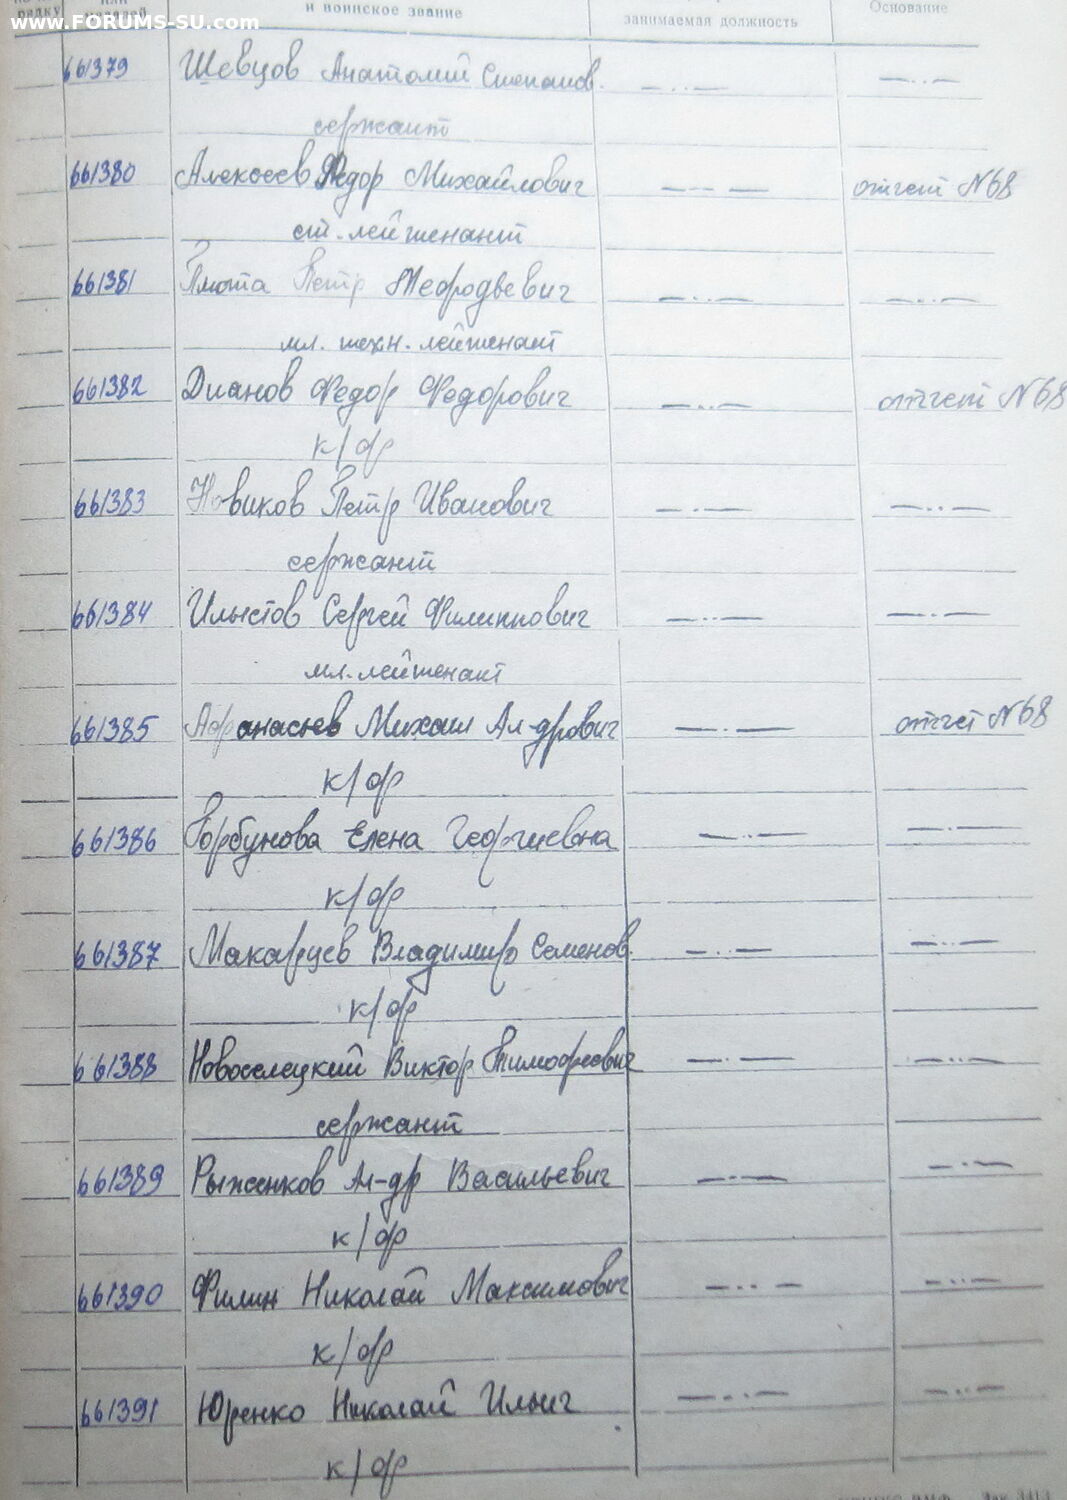 www.FORUMS-SU.com
рядку
и воинское звание
занимаемая должность
Основание
661379 Шевцов Анатолий Степанов. — . . — — . . —
сержант
661380 Алексеев Федор Михайлович — — — отчет N68
ст. лейтенант
661381 Плюта Петр Феородвевич — . . — — . . —
мл. техн. лейтенант
661382 Дианов Федор Федорович — . . — отчет N68
к/ф
661383 Новиков Петр Иванович — . — — . . —
сержант
661384 Сергей Филиппович — . . — — . . —
мл. лейтенант
661385 Афанасьев Михаил Ал-дрович — . — отчет N68
к/ф
661386 Горбунова Елена Георгиевна — . — — . —
к/ф
661387 Макарцев Владимир Семенов. — . . — — . . —
к/ф
661388 Новоселецкий Виктор Тимофеевич — . — — . . —
сержант
661389 Рыженков Ал-др Васильевич — . — — . . —
к/ф
661390 Филин Николай Максимович — . . — — . . —
к/ф
661391 Юренко Николай Ильич — . . — — . . —
к/ф